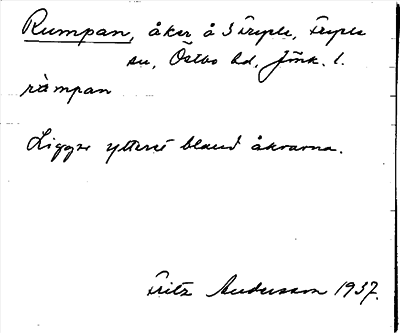 Rumpan, åker å S Tryple, Fryele
sn, Östbo hd, Jönk. l.
ràmpan
Ligger ytterst bland åkrarna.
Fritz Andersson 1937.